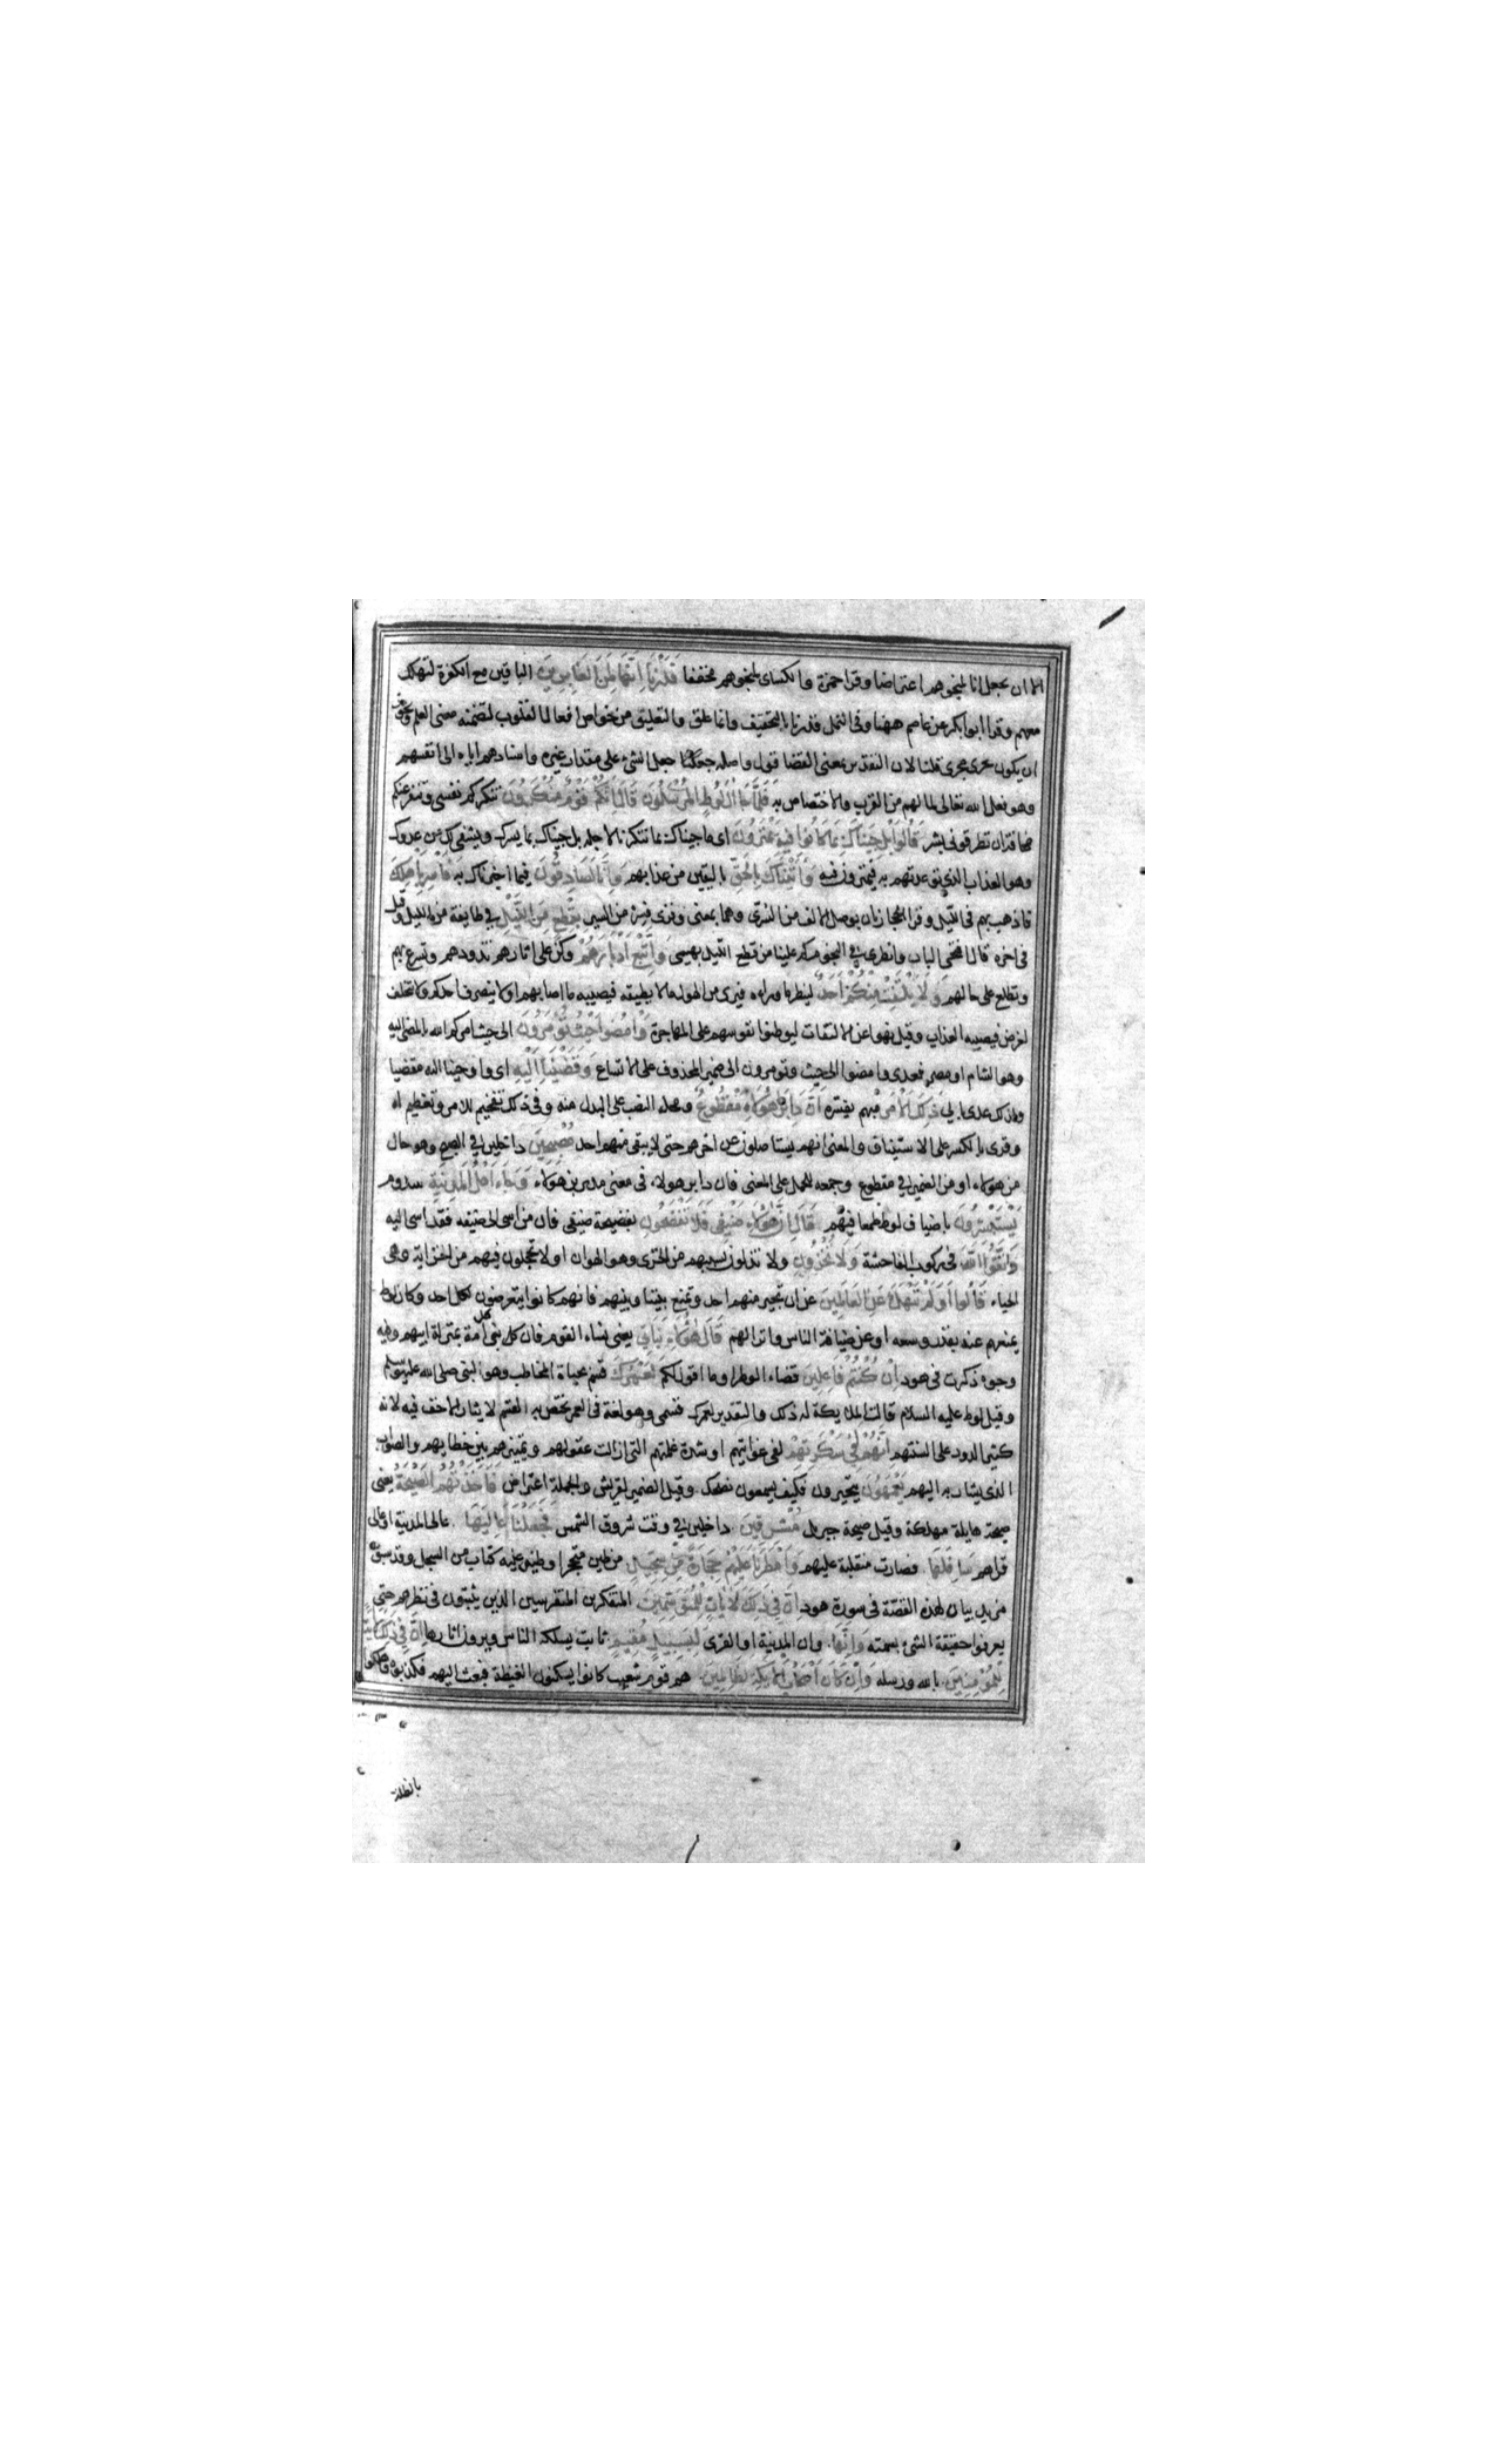 الا ان يجعل انا لمنجوهم اعتراضا وقرا حمزة والكسائ لمنجوهم مخففا قَدَّرْنَا اِنَّهَا لَمِنَ الغَابِرِينَ الباقين مع الكفرة لتهلك
معهم وقرا ابوابكر عن عاصم ههنا وفى النمل قدرنا بالتخفيف وانما علق والتعليق من خواص افعال القلوب لتضمنه معنى العلم ويجوز
ان يكون مجرى قلنا لان التقدير بمعنى القضا قول واصله جعل الشئ على مقدار غيره واسنادهم اياه الى انفسهم
وهو فعل الله تعالى لما لهم من القرب والاختصاص به فَلَمَّا جَاءَ اٰلَ لُوطٍ المُرْسَلُونَ قَالَ اِنَّكُمْ قَوْمٌ مُنْكَرُونَ تنكركم نفسى وتنفر عنكم
مخافة ان تطرقونى بشر قَالُوا بَلْ جِئْنَاكَ بِمَا كَانُوا فِيهِ يَمْتَرُونَ اى ما جيناك بما تنكرنا لاجله بل جيناك بما يسرك ويشفى لك من عدوك
وهو العذاب الذى توعدتهم به فيمترون فيه وَاَتَيْنَاكَ بِالْحَقِّ باليقين من عذابهم وَاِنَّا لَصَادِقُونَ فيما اخبرناك به فَاَسْرِ بِاَهْلِكَ
فاذهب بهم فى الليل وقرا الحجازيان بوصل الالف من السرى وهما بمعنى وقرى فسر من السير بِقِطْعٍ مِنَ اللَّيْلِ فى طايفة من الليل وقيل
فى اخره قال افتحى الباب وانظرى فى النجوم كم علينا من قطع الليل بهيم وَاتَّبِعْ اَدْبَارَهُمْ وكن على اثارهم تذودهم وتسرع بهم
وتطلع على حالهم وَلَا يَلْتَفِتْ مِنْكُمْ اَحَدٌ لينظر ما وراءه فيرى من الهول ما لا يطيقه فيصيبه ما اصابهم او لا ينصرف احدكم ولا يتخلف
لغرض فيصيبه العذاب وقيل نهوا عن الالتفات ليوطنوا نفوسهم على المهاجرة وَامْضُوا حَيْثُ تُؤْمَرُونَ الى حيث امركم الله بالمضى اليه
وهو الشام او مصر فعدى وامضوا الى حيث وتومرون الى ضمير المحذوف على الاتساع وَقَضَيْنَا اِلَيْهِ اى واوحينا اليه مقضيا
ولذلك عدى بالى ذٰلِكَ الاَمْرَ مبهم يفسره اَنَّ دَابِرَ هٰؤُلَاءِ مَقْطُوعٌ ومحله النصب على البدل منه وفى ذلك تفخيم للامر وتعظيم له
وقرى بالكسر على الاستيناف والمعنى انهم يستاصلون عن اخرهم حتى لا يبقى منهم احد مُصْبِحِينَ داخلين فى الصبح وهو حال
من هؤلاء او من الضمير فى مقطوع وجمعه للحمل على المعنى فان دابر هولاء فى معنى مدبرين هؤلاء وَجَاءَ اَهْلُ المَدِينَةِ سدوم
يَسْتَبْشِرُونَ باضياف لوط طمعا فيهم قَالَ اِنَّ هٰؤُلَاءِ ضَيْفِى فَلَا تَفْضَحُونِ بفضيحة ضيفى فان من اسى الى ضيفه فقد اسى اليه
وَاتَّقُوا اللهَ فى ركوب الفاحشة وَلَا تُخْزُونِ ولا تذلون بسببهم من الخزى وهو الهوان او لا تخجلون فيهم من الخزاية وهى
الحياء قَالُوا اَوَلَمْ نَنْهَكَ عَنِ العَالَمِينَ عن ان تجير منهم احد وتمنع بيننا وبينهم فانهم كانوا يتعرضون لكل احد وكان لوط
يمنعهم عنه بقدر وسعه او عن ضيافة الناس وانزالهم قَالَ هٰؤُلَاءِ بَنَاتِى يعنى نساء القوم فان كل نبى امة بمنزلة ابيهم وفيه
وجوه ذكرت فى هود اِنْ كُنْتُمْ فَاعِلِينَ قضاء الوطر او ما اقول لكم لَعَمْرُكَ قسم بحياة المخاطب وهو النبى صلى الله عليه وسلم
وقيل لوط عليه السلام قالت الملايكة له ذلك والتقدير لعمرك قسمى وهو لغة فى العمر يختص به القسم لايثار الاخف فيه لانه
كثير الدور على السنتهم اِنَّهُمْ لَفِى سَكْرَتِهِمْ لفى غوايتهم او شدة غلمتهم التى ازالت عقولهم وتميزهم بين خطايهم والصواب
الذى يشار به اليهم يَعْمَهُونَ يتحيرون فكيف يسمعون نصحك وقيل الضمير لقريش والجملة اعتراض فَاَخَذَتْهُمُ الصَّيْحَةُ يعنى
صيحة هايلة مهلكة وقيل صيحة جبريل مُشْرِقِينَ داخلين فى وقت شروق الشمس فَجَعَلْنَا عَالِيَهَا عالى المدينة او عالى
قراهم سَافِلَهَا فصارت منقلبة عليهم وَاَمْطَرْنَا عَلَيْهِمْ حِجَارَةً مِنْ سِجِّيلٍ من طين متحجر او طين عليه كتاب من السجل وقد سبق
مزيد بيان لهذه القصة فى سورة هود اِنَّ فِى ذٰلِكَ لَاٰيَاتٍ لِلْمُتَوَسِّمِينَ المتفكرين المتفرسين الذين يثبتون فى نظرهم حتى
يعرفوا حقيقة الشئ بسمته وَاِنَّهَا وان المدينة او القرى لَبِسَبِيلٍ مُقِيمٍ ثابت يسلكه الناس ويرون اثارها اِنَّ فِى ذٰلِكَ لَاٰيَةً
لِلْمُؤْمِنِينَ بالله ورسله وَاِنْ كَانَ اَصْحَابُ الاَيْكَةِ لَظَالِمِينَ هم قوم شعيب كانوا يسكنون الغيظة فبعث اليهم فكذبوه فاهلكوا
بالظلة